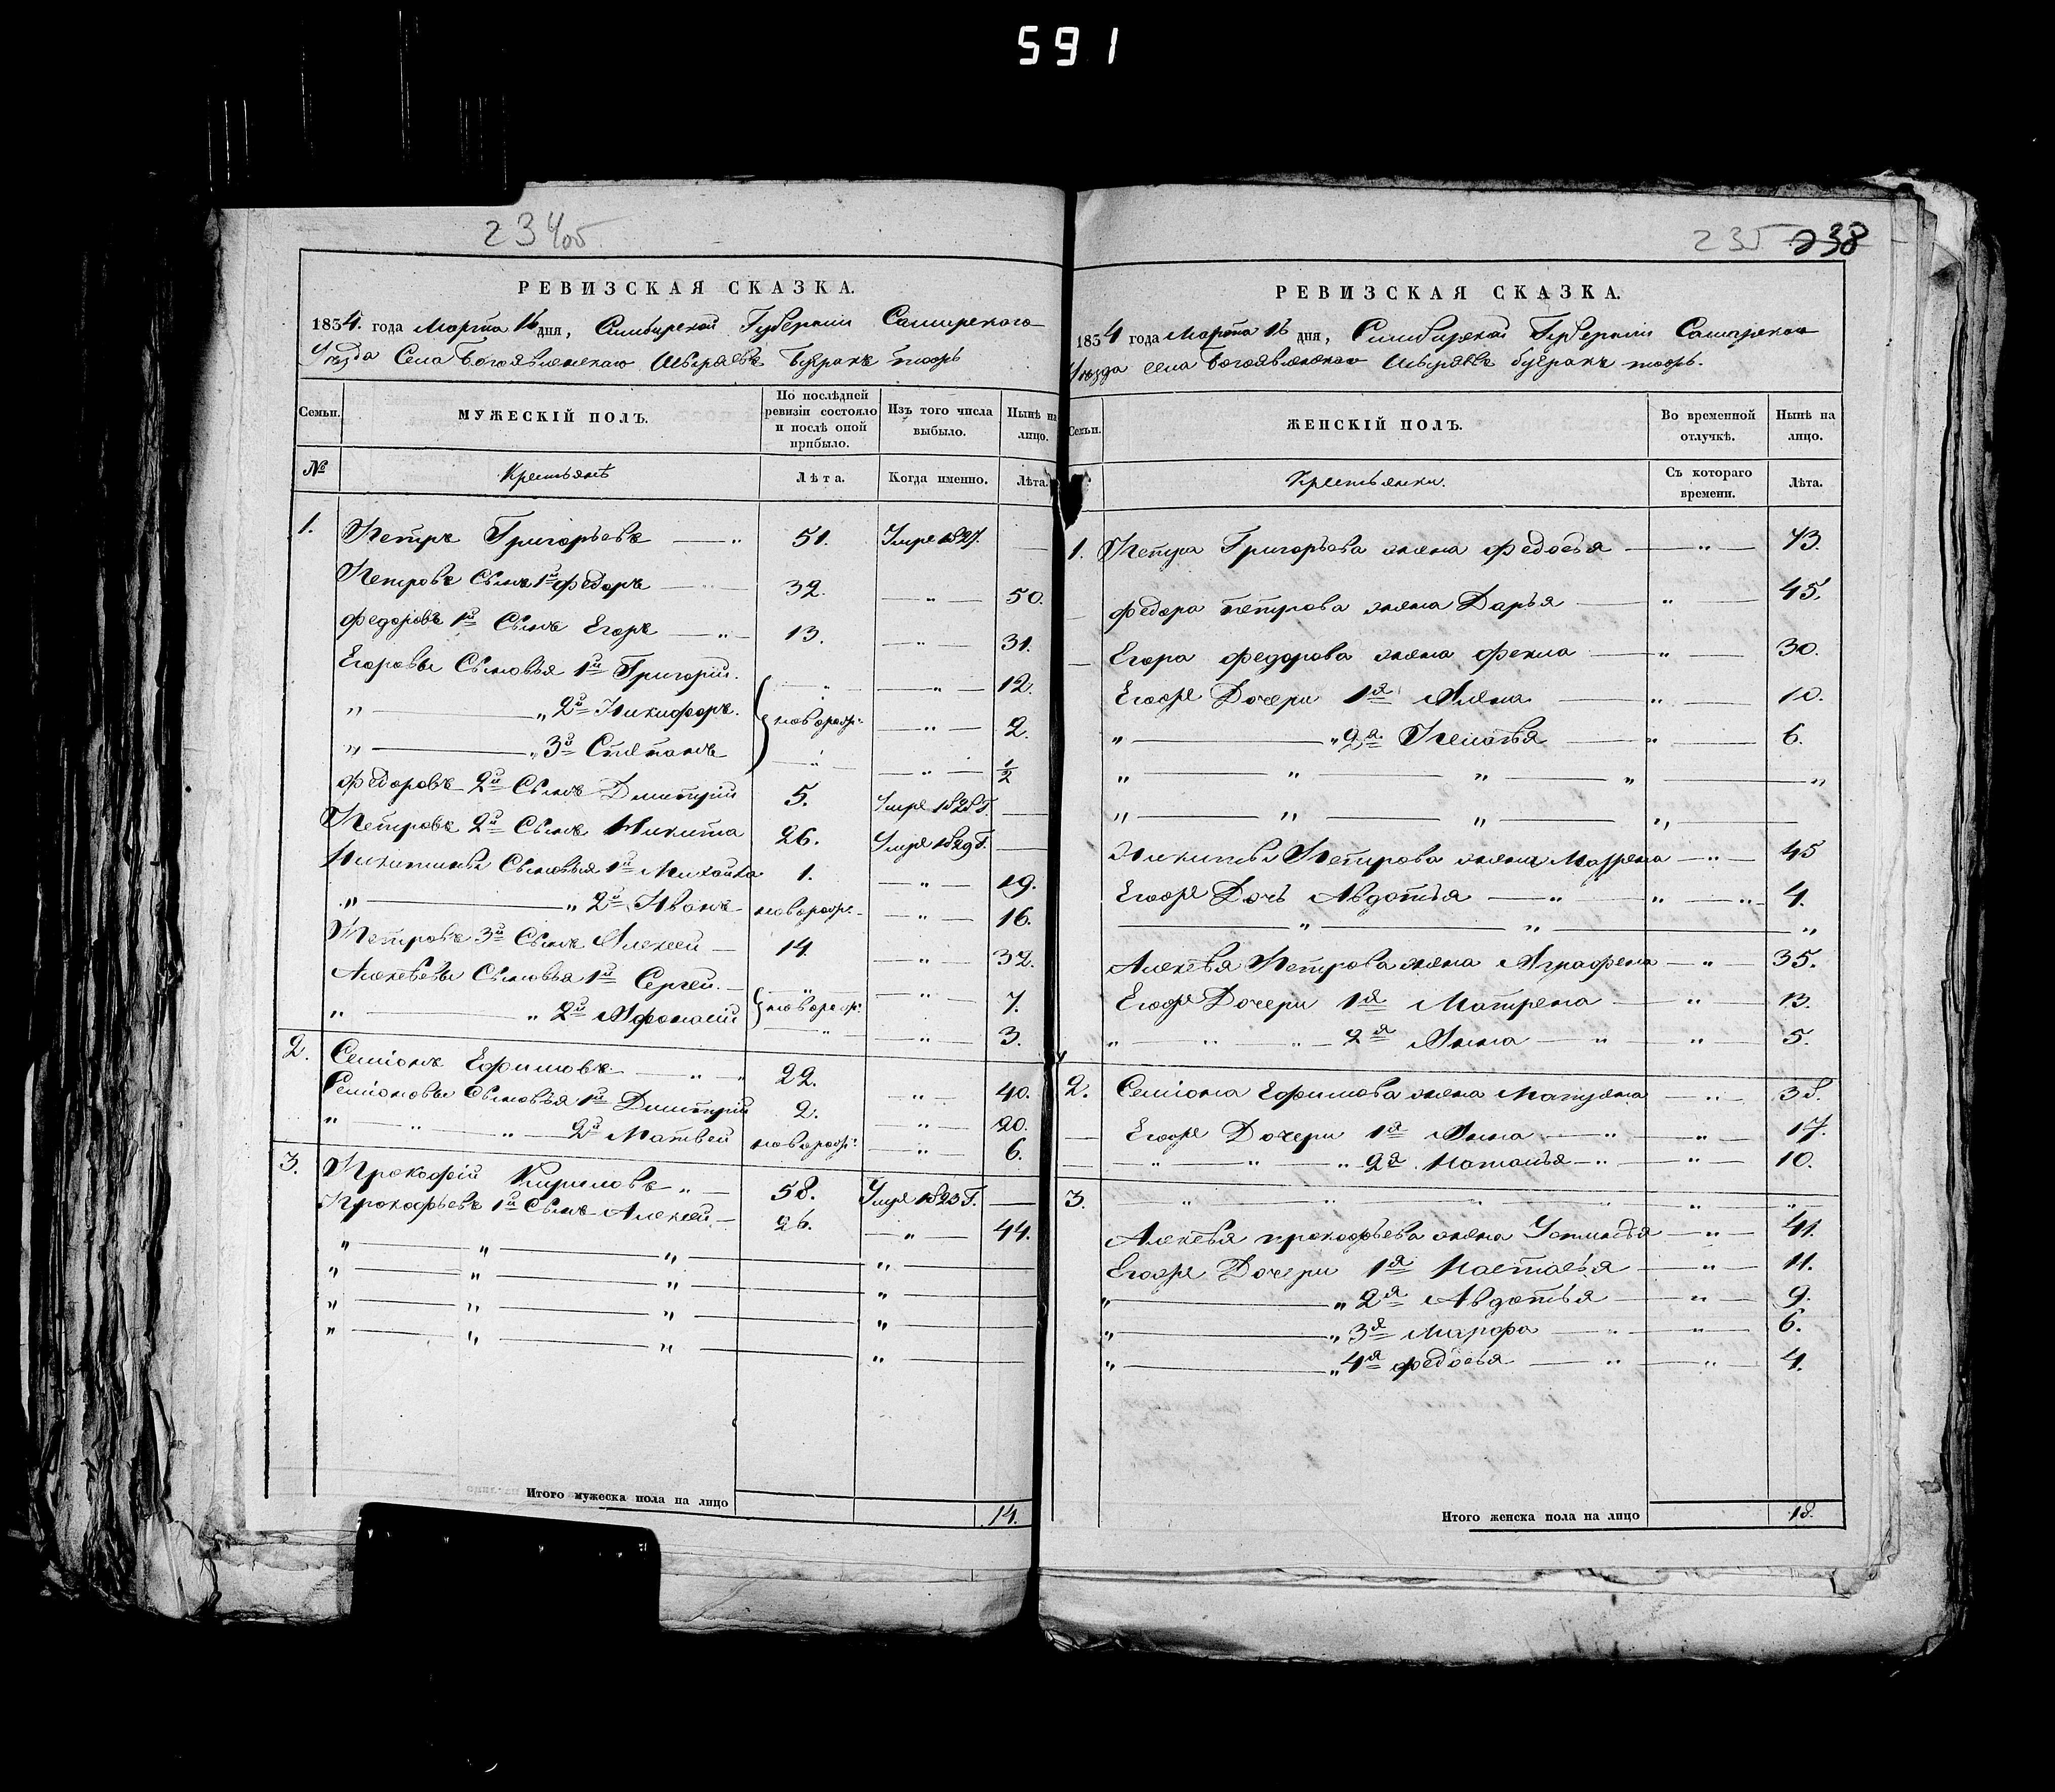 591
234об
РЕВИЗСКАЯ СКАЗКА.
1834. года Марта 16 дня, Симбирской Губернии Самарскаго
Уѣзда Села Богоявленскаго Буеракъ тожъ
Семьи.
МУЖЕСКІЙ ПОЛЪ.
По послѣдней ревизіи состояло и послѣ оной прибыло.
Изъ того числа выбыло.
Нынѣ на лицо.
№
Крестьянѣ
Лѣта.
Когда именно.
Лѣта.
1. Петръ Григорьевъ — " 51. Умре 1827. —
Петровъ Сынъ 1й Федоръ — 32. — " — 50.
Федоровъ 1й Сынъ Егоръ — " — 13. — " — 31.
Егоровы Сыновья 1й Григорій. " — " — 12.
" — " 2й Никифоръ. новорож: — " — 2.
" — " 3й Степанъ " — " — 1/2
Федоровъ 2й Сынъ Дмитрій 5. Умре 1828 Г. —
Петровъ 2й Сынъ Никита 26. Умре 1829 Г. —
Никитины Сыновья 1й Михайла 1. — " — 19.
" — " 2й Иванъ новорож: — " — 16.
Петровъ 3й Сынъ Алексей — 14. — " — 32.
Алексѣевы Сыновья 1й Сергей. — " — " — 7.
" — " 2й Афонасій новорож: — " — 3.
2. Семіонъ Ефимовъ — " — " 22. — " — 40.
Семіоновы Сыновья 1й Дмитрій 2. — " — 20.
" " " — 2й Матвей новорож: — " — 6.
3. Прокофій Кириловъ " — 58. Умре 1823 Г. —
Прокофьевъ 1й Сынъ Алексей — 26. — " — 44.
" — " — " — " —
" — " — " — " —
" — " — " — " —
" — " — " — " —
Итого мужеска пола на лицо 14.
235 238
РЕВИЗСКАЯ СКАЗКА.
1834 года Марта 16 дня, Симбирской Губерніи Самарскаго
Уѣзда села Богоявленскаго буеракъ тожъ.
Семьи.
ЖЕНСКІЙ ПОЛЪ.
Во временной отлучкѣ.
Нынѣ на лицо.
Крестьянки.
Съ котораго времени.
Лѣта.
1. Петра Григорьева жена Федосья — " — 73.
Федора Петрова жена Дарья — " — 45.
Егора Федорова жена Фекла — " — 30.
Егожъ Дочери 1я Алена — " — 10.
" — " 2я Пелагья — " — 6.
" — " — " — " — "
" — " — " — " —
Никиты Петрова жена Матрена — " — 45
Егожъ Дочь Авдотья — " — " — " 4.
— " — " — "
Алексѣя Петрова жена Аграфена — " 35.
Егожъ Дочери 1я Матрена — " — 13.
" — " " — 2я Анна — " " 5.
2. Семіона Ефимова жена Матрена — " — 38.
Егожъ Дочери 1я Анна — " — " — 17.
— " — " — " 2я Наталья — " — " — 10.
3. " " " " " "
Алексѣя прокофьева жена Устинья — " — 41.
Егожъ Дочери 1я Настасья — " — 11.
" — " 2я Авдотья — " — 9.
" — " 3я Марфа — " — " — 6.
" — " 4я федосья — " — " — 4.
Итого женска пола на лицо 18.